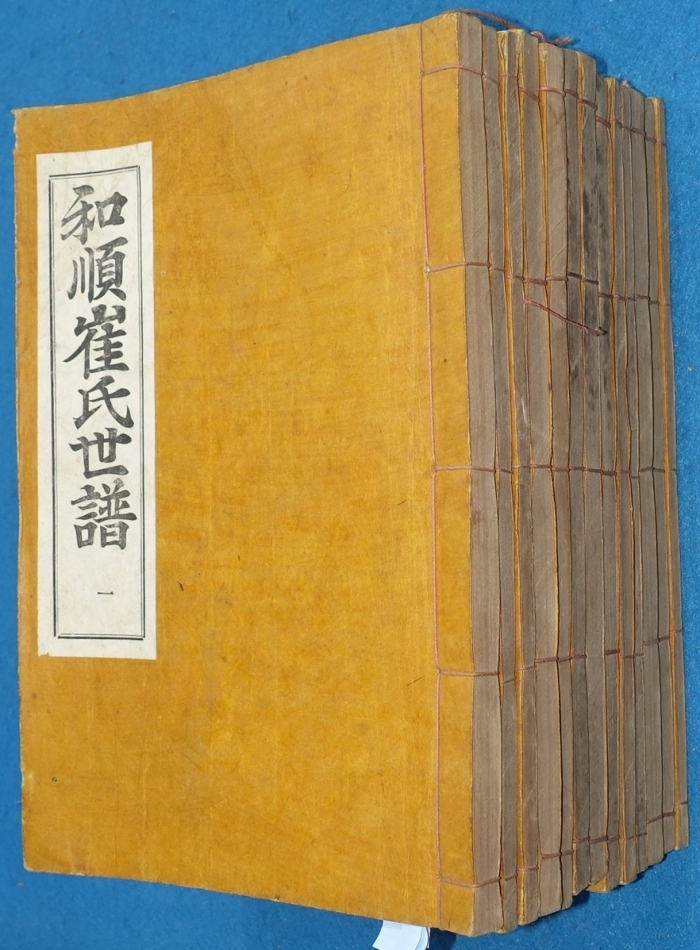 和順崔氏世譜
一